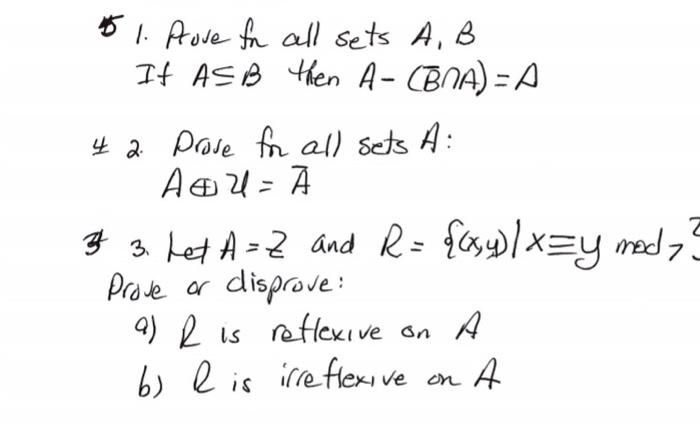 5 1. Prove for all sets A, B
If A⊆B then A - (B̅∩A) = A
4 2. Prove for all sets A:
A ⊕ U = A̅
3 3. Let A = Z and R = {(x,y) | x≡y mod 7}
Prove or disprove:
a) R is reflexive on A
b) R is irreflexive on A